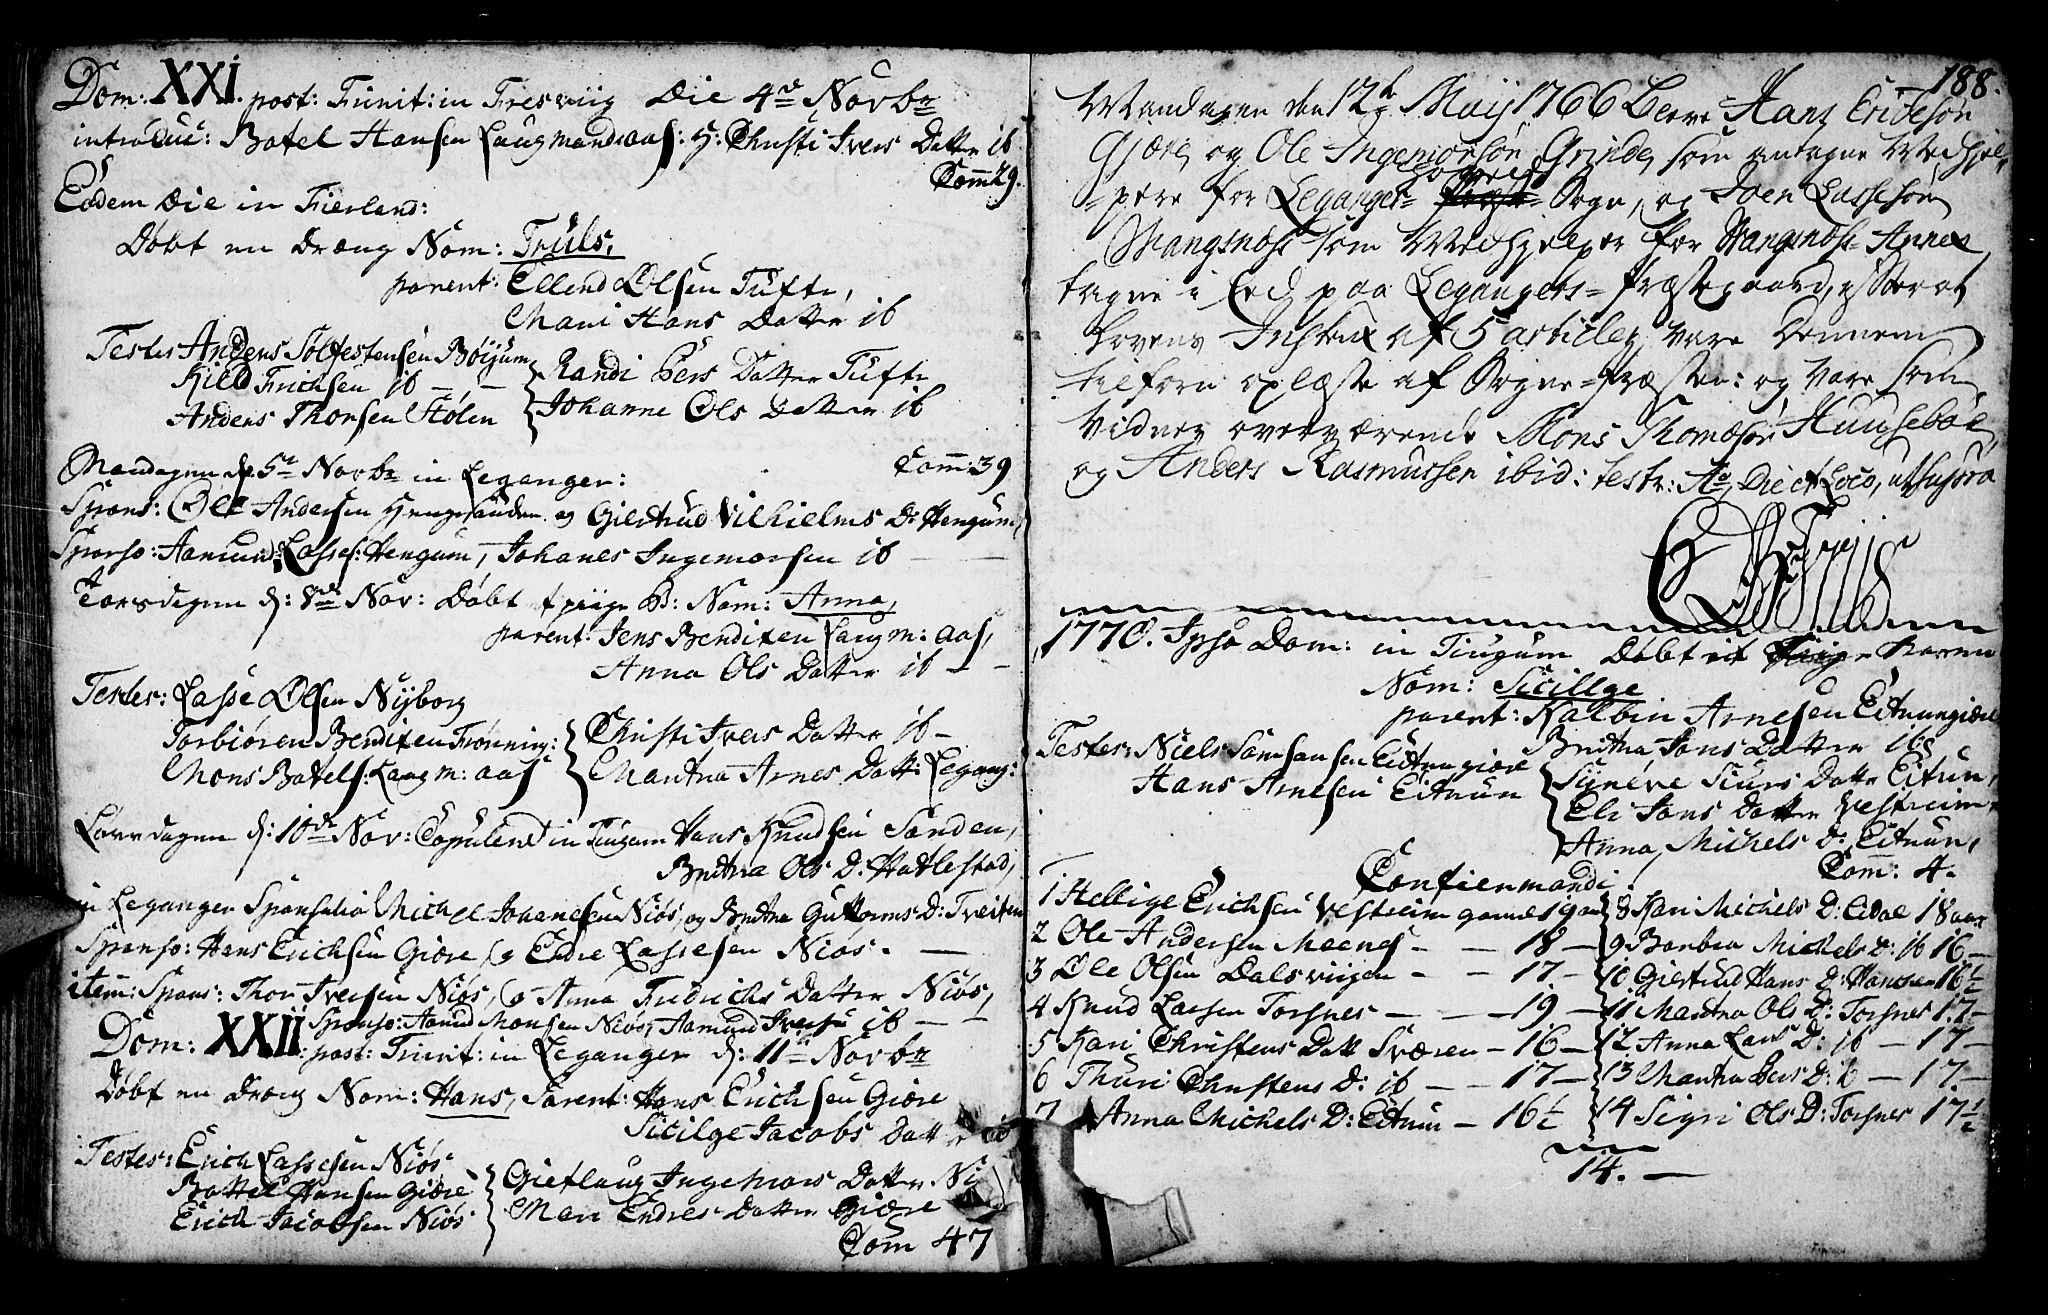 Dom: XXI. post: Trinit: in Fresviig Die 4de Novbr
introduc: Botel Hansen Laugmandsaas: H: Christi Ivers Datter ib
Com̄ 29.
Eodem Die in Fierland:
Døbt en Dreng Nom: Truls,
parent: Ellend Olsen Tufte,
Mari Hans Datter ib
Testes Anders Sølfestersen Bøijum
Kield Frichsen ib
Anders Thorsen Stølen
Randi Pers Datter Tufte
Johanne Ols Datter ib
Com̄: 39
Mandagen d: 5te Novbr in Leganger:
Spons: Ole Andersen Hengesanden og Giertrud Vilhielms D: Hengum,
Sponso: Aamund Lasses: Hengum, Johanes Ingemorsen ib
Torsdagen d: 8de Nov: Døbt et piige B: Nom: Anna,
parent: Jens Bendixen Laugm: aas,
Anna Ols Datter ib
Testes: Lasse Olsen Nyborg
Torbiøren Bendixen Frønning:
Mons Botels: Laugm: aas
Christi Ivers Datter ib
Martha Arnes Datt: Legang:
Løverdagen d: 10de Nov: Copulered in Tiugum Hans Knudsen Sanden,
Britha Ols D: Hatlestad,
in Leganger Sponsalia Michel Johanesen Niøs, og Britha Guttorms D: Tveiten
Sponso: Hans Erichsen Giøre, og Endre Lassesen Niøs.
item: Spons: Thor Iversen Niøs, og Anna Fredrichs Datter Niøs,
Sponso: Aamund Monsen Niøs, Aamund Iversen ib
Dom: XXII post: Trinit: in Leganger d: 11te Novbr
Døbt en Dreng Nom: Hans, Parent: Hans Erichsen Giøre
Sicilge Jacobs Datter ib
Testes: Erich Lassesen Niøs
Bottel Hansen Giøre
Erich Jacobsen Niøs
Gietlaug Ingemors Datter Ni
Mari Endres Datter Giøre
Com 47
188.
Mandagen den 12te Maij 1766 bleve Hans Erichsøn
Gjøre, og Ole Ingemorsøn Grinde, som antagne Medhjel-
-pere for Leganger- Hoved Sogn, og Joen Lassesøn
Wangsnæss som Medhjelper for Wangsnæss-Annex
tagne i Eed paa Legangers-Præstegaard, efterat
Lovens Instrux af 5 articler vare dennem
tilforn oplæste af Sogne-Præsten: og vare som
Vidner overværende Mons Thomæsøn Huusebøe,
og Anders Rasmussen ibid: testr: Ao, Die et Loco, ut supra
1770. Ipso Dom: in Tiugum Døbt et Piige Baren
Nom: Sicillge
parent: Kolbin Arnesen Eitrungiøre
Britha Jons Datter ib
Testes: Niels Samsonsen Eitrungiøre
Hans Arnesen Eitrun
Siynève Siurs Datter Eitrun,
Eli Jons Datter Vestreim,
Anna Michels D: Eitrun,
Com̄: 4.
Confirmandi
1 Hellige Erichsen Vestreim gamel 19 aar
2 Ole Andersen Meenes - - 18 -
3 Ole Olsen Dalsviigen - - 17 -
4 Knud Larsen Torsnes - - 19 -
5 Kari Christens Datt Sværen - 16 -
6 Thuri Christens D: ib - - 17 -
7 Anna Michels D: Eitrun - 16½
8 Kari Michels D: Eidal 18 aar
9 Barbra Michels D: ib 16 -
10. Giertrud Hans D: Hansen 16½
11 Martha Ols D: Torsnes 17 -
12 Anna Lars D: ib - 17 -
13 Martha Pers D: ib - 17. -
14 Sigri Ols D: Torsnes 17½
14. -